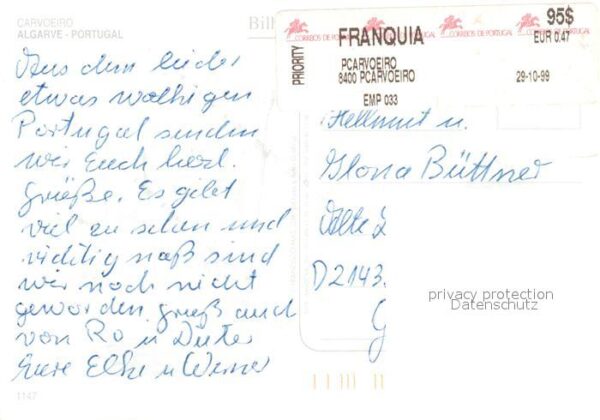 CARVOEIRO
ALGARVE - PORTUGAL
Aus dem leider
etwas wolkigen
Portugal senden
wir Euch herzl.
Grüße. Es gibt
viel zu sehen und
richtig naß sind
wir noch nicht
geworden. Gruß auch
von Ro u Dieter
Eure Elke u Werner
1147
CORREIOS DE PORTUGAL CORREIOS DE PORTUGAL CORREIOS DE PORTUGAL
PRIORITY
FRANQUIA
95$
EUR 0,47
PCARVOEIRO
8400 PCARVOEIRO
29-10-99
EMP 033
Hellmut u.
Ilona Büttner
D 2143
G
privacy protection
Datenschutz